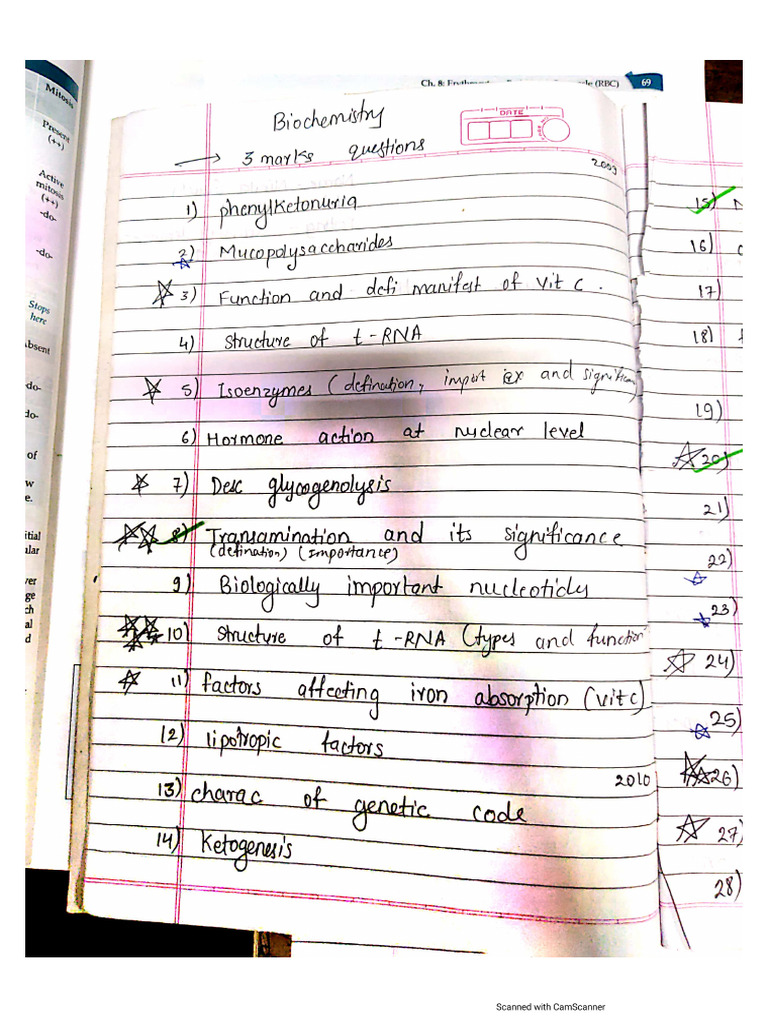 Mitosis
Present
(++)
Active
mitosis
(++)
-do-
-do-
Stops
here
Absent
-do-
-do-
of
w
e.
itial
ular
ver
ge
ch
al
d
(RBC) 69
Biochemistry
DATE
→ 3 marks questions
2009
1) phenylketonuria
2) Mucopolysaccharides
3) Function and defi manifest of vit C.
4) Structure of t-RNA
5) Isoenzymes (defination, import ex and significan
6) Hormone action at nuclear level
7) Desc glycogenolysis
8) Transamination and its significance
(defination) (importance)
9) Biologically important nucleotids
10) structure of t-RNA (types and function
11) factors affecting iron absorption (vit c)
12) lipotropic factors
2010
13) charac of genetic code
14) Ketogenesis
15)
16)
17)
18)
19)
20)
21)
22)
23)
24)
25)
26)
27)
28)
Scanned with CamScanner